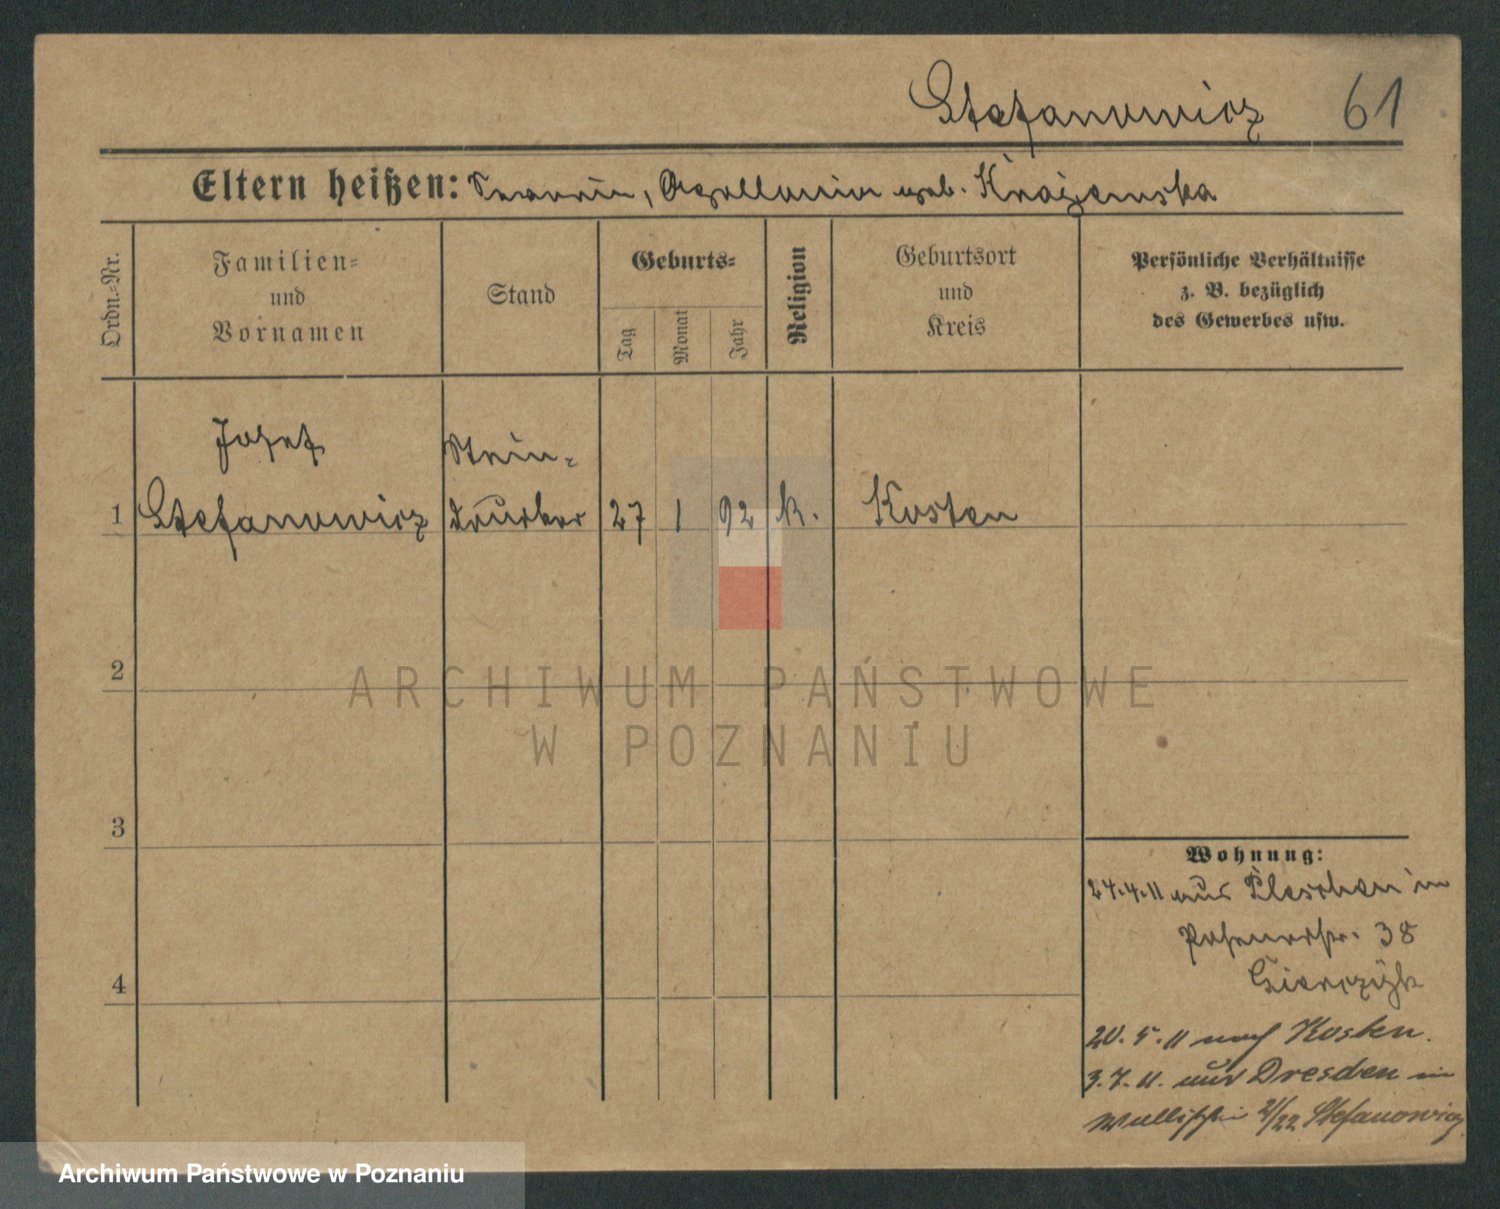 Stefanowicz 61
Eltern heißen: Severin, Apollonia geb. Krajewska
Ordn.-Nr.
Familien- und Vornamen
Stand
Geburts-
Tag
Monat
Jahr
Religion
Geburtsort und Kreis
Persönliche Verhältnisse
z. B. bezüglich
des Gewerbes usw.
Josef
Stein-
1 Stefanowicz drucker 27 1 92 k. Kosten
2
ARCHIWUM PAŃSTWOWE
W POZNANIU
3
Wohnung:
24.4.11 aus Pleschen in
Posenerstr. 38
4
20.5.11 nach Kosten.
3.7.11. aus Dresden in
21/22 Stefanowicz
Archiwum Państwowe w Poznaniu